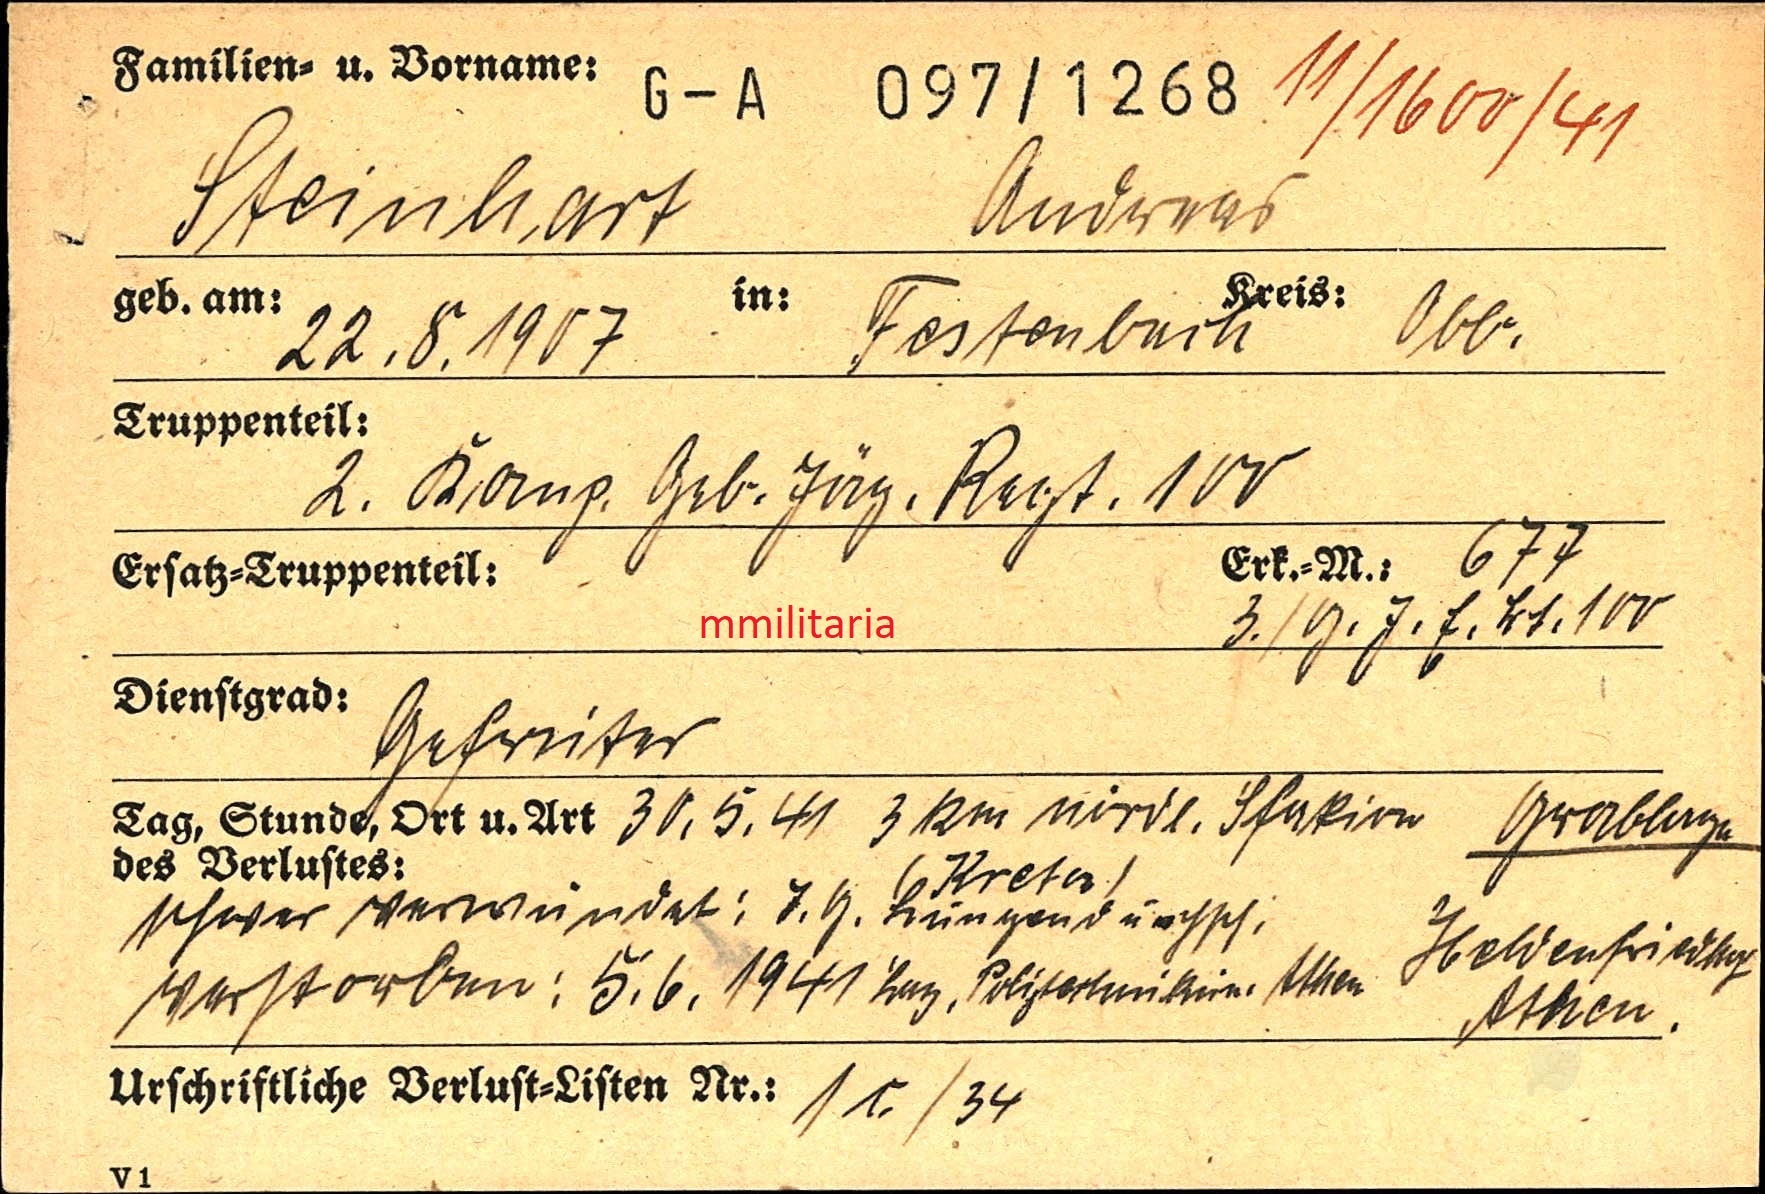 Familien- u. Vorname: G-A 097/1268 11/1600/41
Steinhart Andreas
geb. am: 22.8.1907 in: Festenbach Kreis: Obb.
Truppenteil:
2. Komp. Geb. Jäg. Regt. 100
Ersatz-Truppenteil: Erk.-M.: 677
mmilitaria 3./G. J. E. Kt. 100
Dienstgrad: Gefreiter
Tag, Stunde, Ort u. Art 30.5.41 3 km nördl. Sfakion Grablage
des Verlustes: (Kreta)
schwer verwundet: J. G. Lungendurchsch.
verstorben: 5.6.1941 Laz. Athen Heldenfriedhof
Athen.
Urschriftliche Verlust-Listen Nr.: 1 c./34
V 1